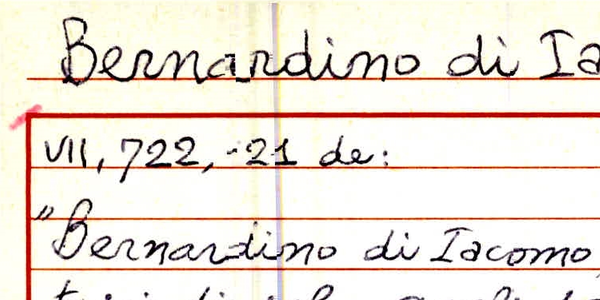 Bernardino di Ia
VII, 722, -21 de:
"Bernardino di Iacomo,